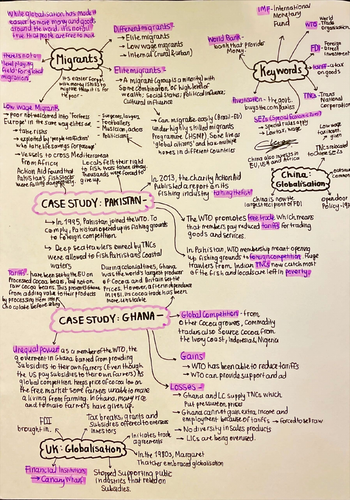 While globalisation has made it
easier to move money and goods
around the world, it is not
true that people are free to move
There's not a
level playing
field for global
migration.
Migrants
It's easier for ppl
with money/skills to
migrate than it is
the poor -
Different migrants -
Elite migrants
Low wage migrants
Internal (rural → urban)
Elite migrants -
A migrant (group/minority) with
some combination of, high level of
wealth; Social status; Political influence;
Cultural influence
Surgeons, lawyers
Footballers,
Musician, actors
Politicians
Can migrate easily (Brexit-EU)
under highly skilled migrants
Programme (HSMP) some
global citizens' and have multiple
homes in different countries
Low Wage Migrants -
take risks
exploited by 'people traffickers'
who take life savings for passage
Vessels to cross Mediterranean
from Africa.
IMF - International
Monetary
Fund
World Bank -
both that provide
money
WTO
World Trade
Org.
FDI
Foreign
Direct
Investment
Keywords
tariff - a tax
on goods
TNCs - Trans
National
Corporation
Privatisation - The govt.
buys the companies
SEZs (Special Economic Zones)
special rules apply
Low tax, wage
China also operates in
EU, USA and Africa
China :
Globalisation
China is now the
largest recipient of FDI
Open door
Policy
Action Aid found that
Pakistan's fish stocks
were falling dangerously.
Locals lost their right
to fish, was taken offshore
thousands were forced to
give up.
In 2013, the charity Action Aid
Published a report on its
fishing industry
CASE STUDY : PAKISTAN-
In 1995, Pakistan joined the WTO. To
comply, Pakistan opened up its fishing grounds
to foreign competition.
Deep sea trawlers owned by TNCs
were allowed to fish Pakistan's coastal
waters
The WTO promotes free trade which means
that members you reduced tariffs for trading
goods and services.
In Pakistan, WTO membership meant opening
up fishing grounds to foreign competition. Huge
trawlers from Indian TNCs now catch most
of the fish and locals are left in poverty
Tariffs have been set by the EU on
Processed cocoa beans, but not on
raw cocoa beans. This prevents Ghana
from adding value to their products
by processing them into
chocolate before export
During colonial times, Ghana
was the world's largest producer
of cocoa and Britain set the
prices. However, after independence
in 1957, its cocoa trade has been
more unstable.
CASE STUDY : GHANA -
Global Competition - from
other cocoa growers, commodity
traders also source cocoa from
the Ivory Coast, Indonesia, Nigeria
Unequal power as a member of the WTO, the
government in Ghana banned from providing
subsidies to their own farmers (even though
the US pay subsidies to their own farmers) as
global competition, keeps price of cocoa low on
the free market. Some farmers unable to make
a living from farming. In Ghana, many rice
and tomato farmers have given up.
Gains
WTO has been able to reduce tariffs
WTO can provide support and aid
Losses -
Ghana and LIC supply TNCs which
put pressure on price
Ghana cannot gain extra income and
employment because of tariffs → forced to sell raw
No diversity in sales products
LICs are being overruled.
FDI
brought in.
Tax breaks, grants and
Subsidies offered to overseas
investors
Initiates trade
agreements
UK : Globalisation
In the 1980s, Margaret
Thatcher embraced globalisation
Financial Institutions
→ Canary Wharf
Stopped supporting public
industries that relied on
subsidies.